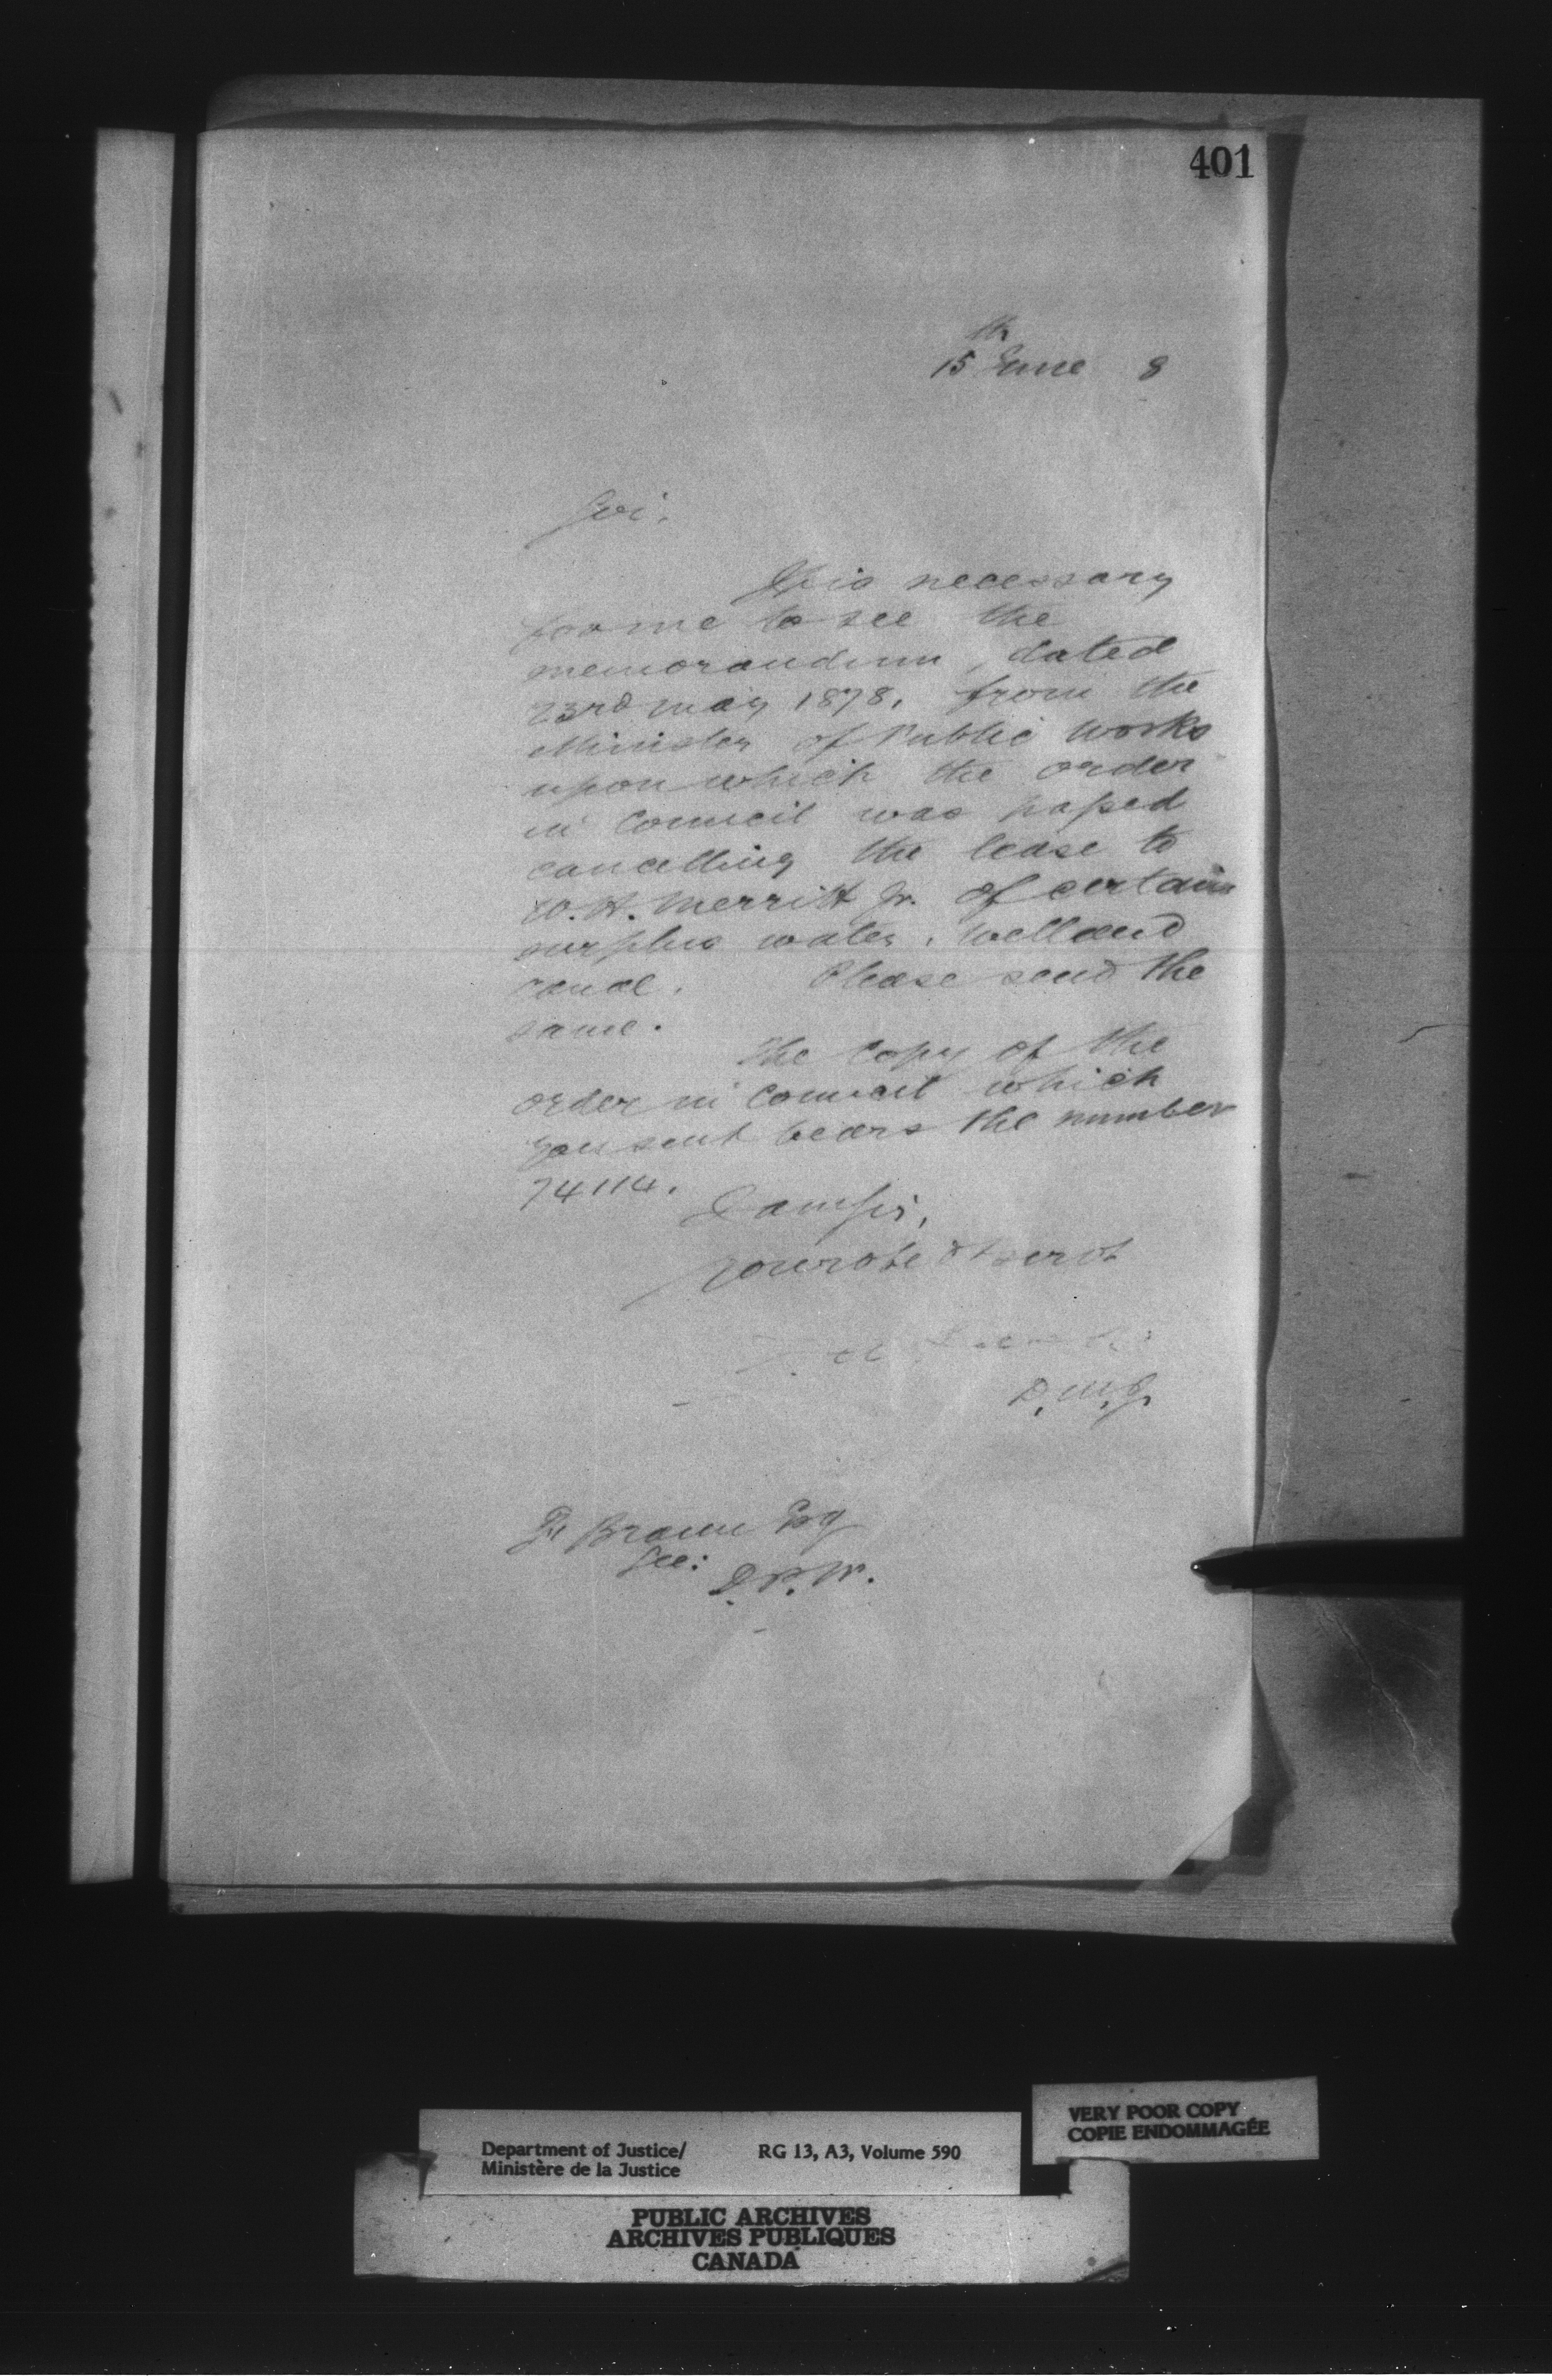 401
15th June 8
Sir,
It is necessary
for me to see the
memorandum, dated
23rd May 1878, from the
Minister of Public Works
upon which the order
in Council was passed
cancelling the lease to
W. H. Merritt Jr. of certain
surplus water, Welland
canal. Please send the
same.
The copy of the
order in Council which
you sent bears the number
74114.
I am Sir,
Your obt servt
D. M. J.
F. Braun Esq
Sec:
D. P. W.
VERY POOR COPY
COPIE ENDOMMAGÉE
Department of Justice/ RG 13, A3, Volume 590
Ministère de la Justice
PUBLIC ARCHIVES
ARCHIVES PUBLIQUES
CANADA